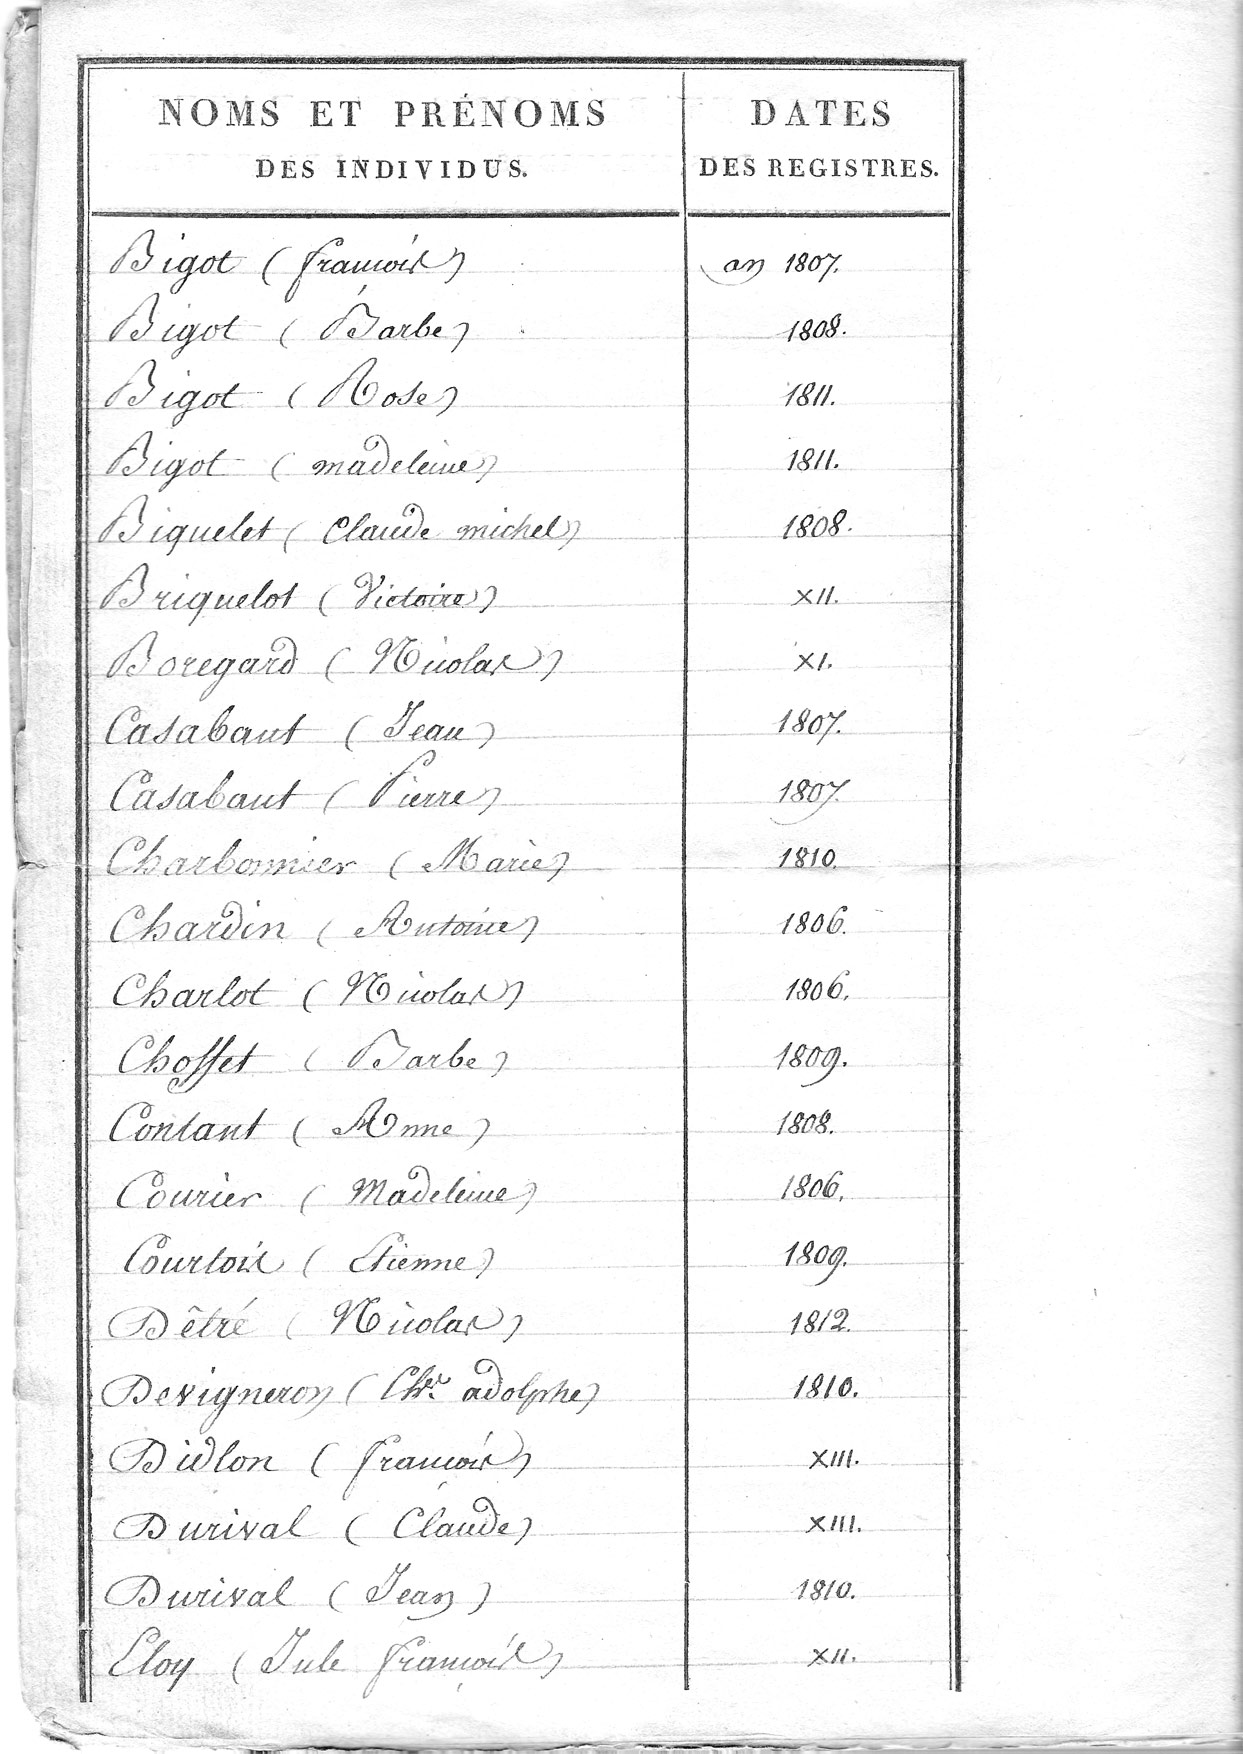 NOMS ET PRÉNOMS
DES INDIVIDUS.
DATES
DES REGISTRES.
Bigot (françois) an 1807.
Bigot (Barbe) 1808.
Bigot (Rose) 1811.
Bigot (madeleine) 1811.
Biquelet (Claude michel) 1808.
Briquelot (Victoire) XII.
Boregard (Nicolas) XI.
Casabant (Jean) 1807.
Casabant (Pierre) 1807.
Charbonnier (Marie) 1810.
Chardin (Antoine) 1806.
Charlot (Nicolas) 1806.
Chosset (Barbe) 1809.
Contant (Anne) 1808.
Courier (Madeleine) 1806.
Courtois (Etienne) 1809.
Dêtré (Nicolas) 1812.
Devigneron (Chr. adolphe) 1810.
Didlon (françois) XIII.
Durival (Claude) XIII.
Durival (Jean) 1810.
Eloy (Jule françois) XII.